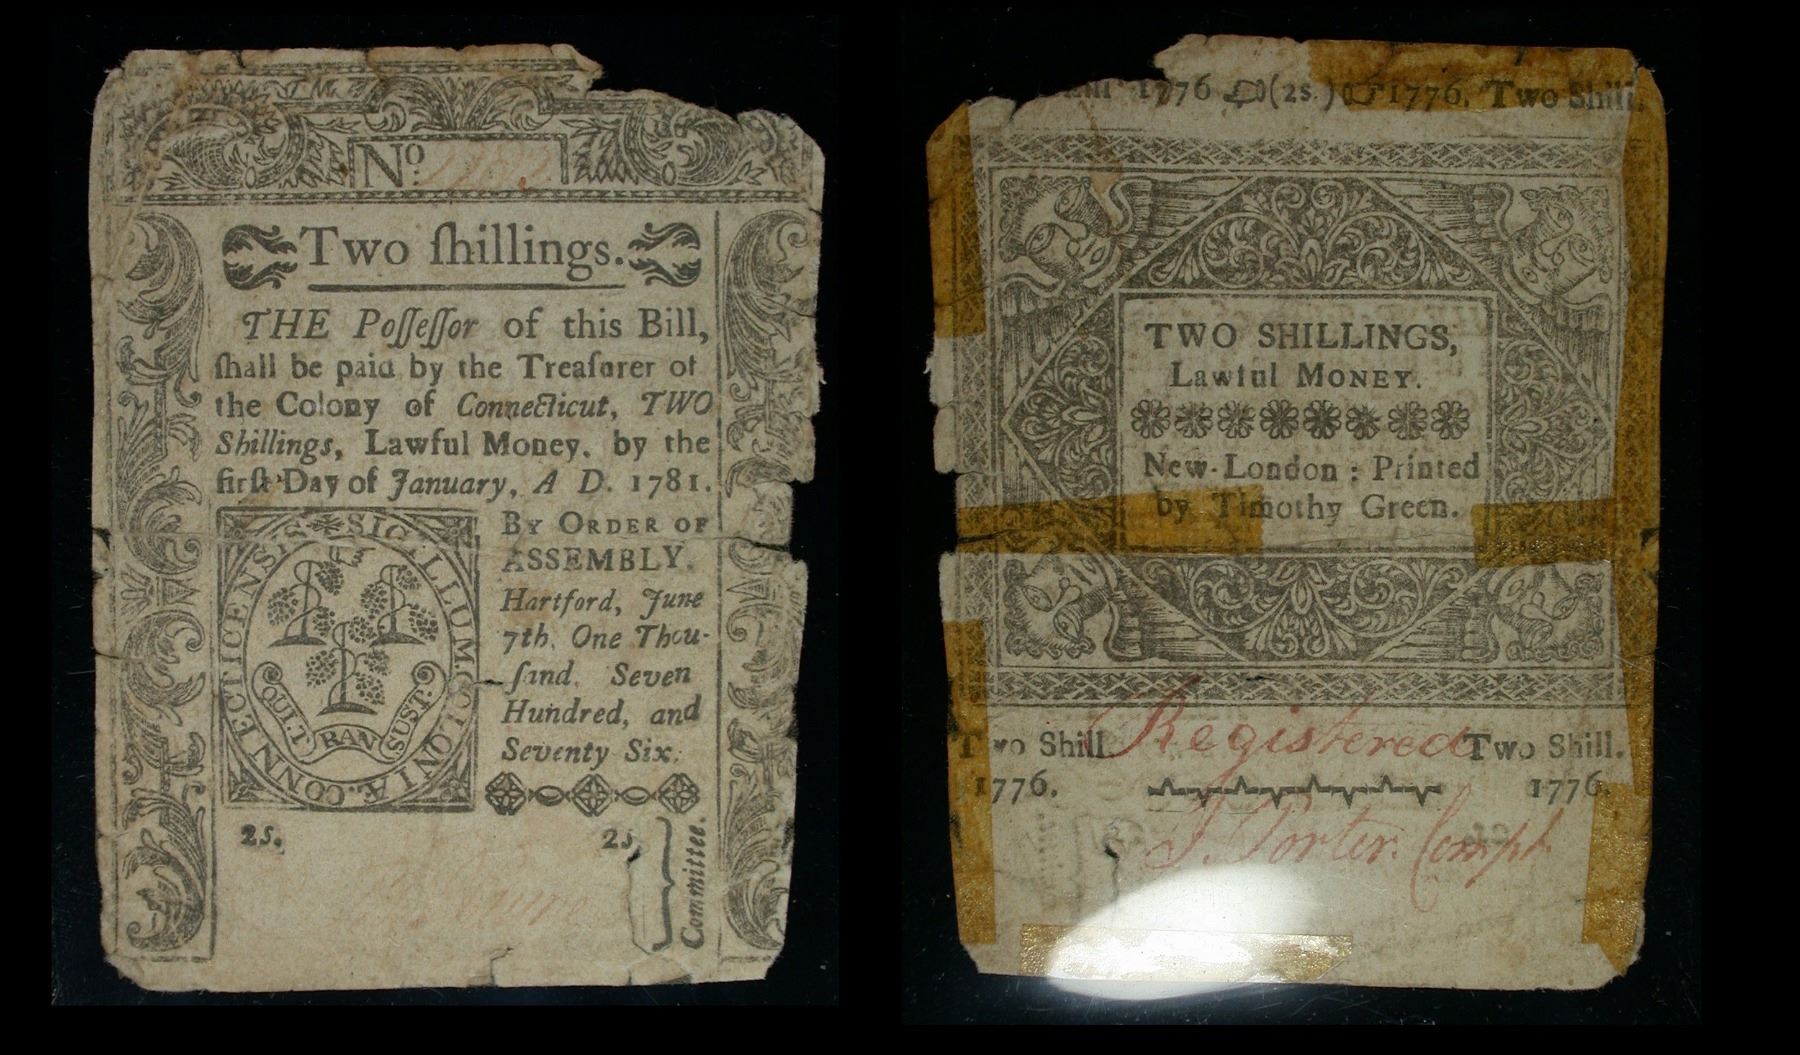 No.
Two ſhillings.
THE Poſſeſſor of this Bill,
ſhall be paid by the Treaſurer of
the Colony of Connecticut, TWO
Shillings, Lawful Money, by the
firſt Day of January, A D. 1781.
BY ORDER OF
ASSEMBLY.
Hartford, June
7th, One Thou-
ſand, Seven
Hundred, and
Seventy Six.
SIGILLUM. COLONIÆ. CONNECTICENSIS
QUI. T RAN SUST.
2s. 2s.
Committee.
1776 (2s.) 1776. Two Shill.
TWO SHILLINGS,
Lawful MONEY.
New-London: Printed
by Timothy Green.
Two Shill. Registered Two Shill.
1776. 1776.
J. Porter. Compt.